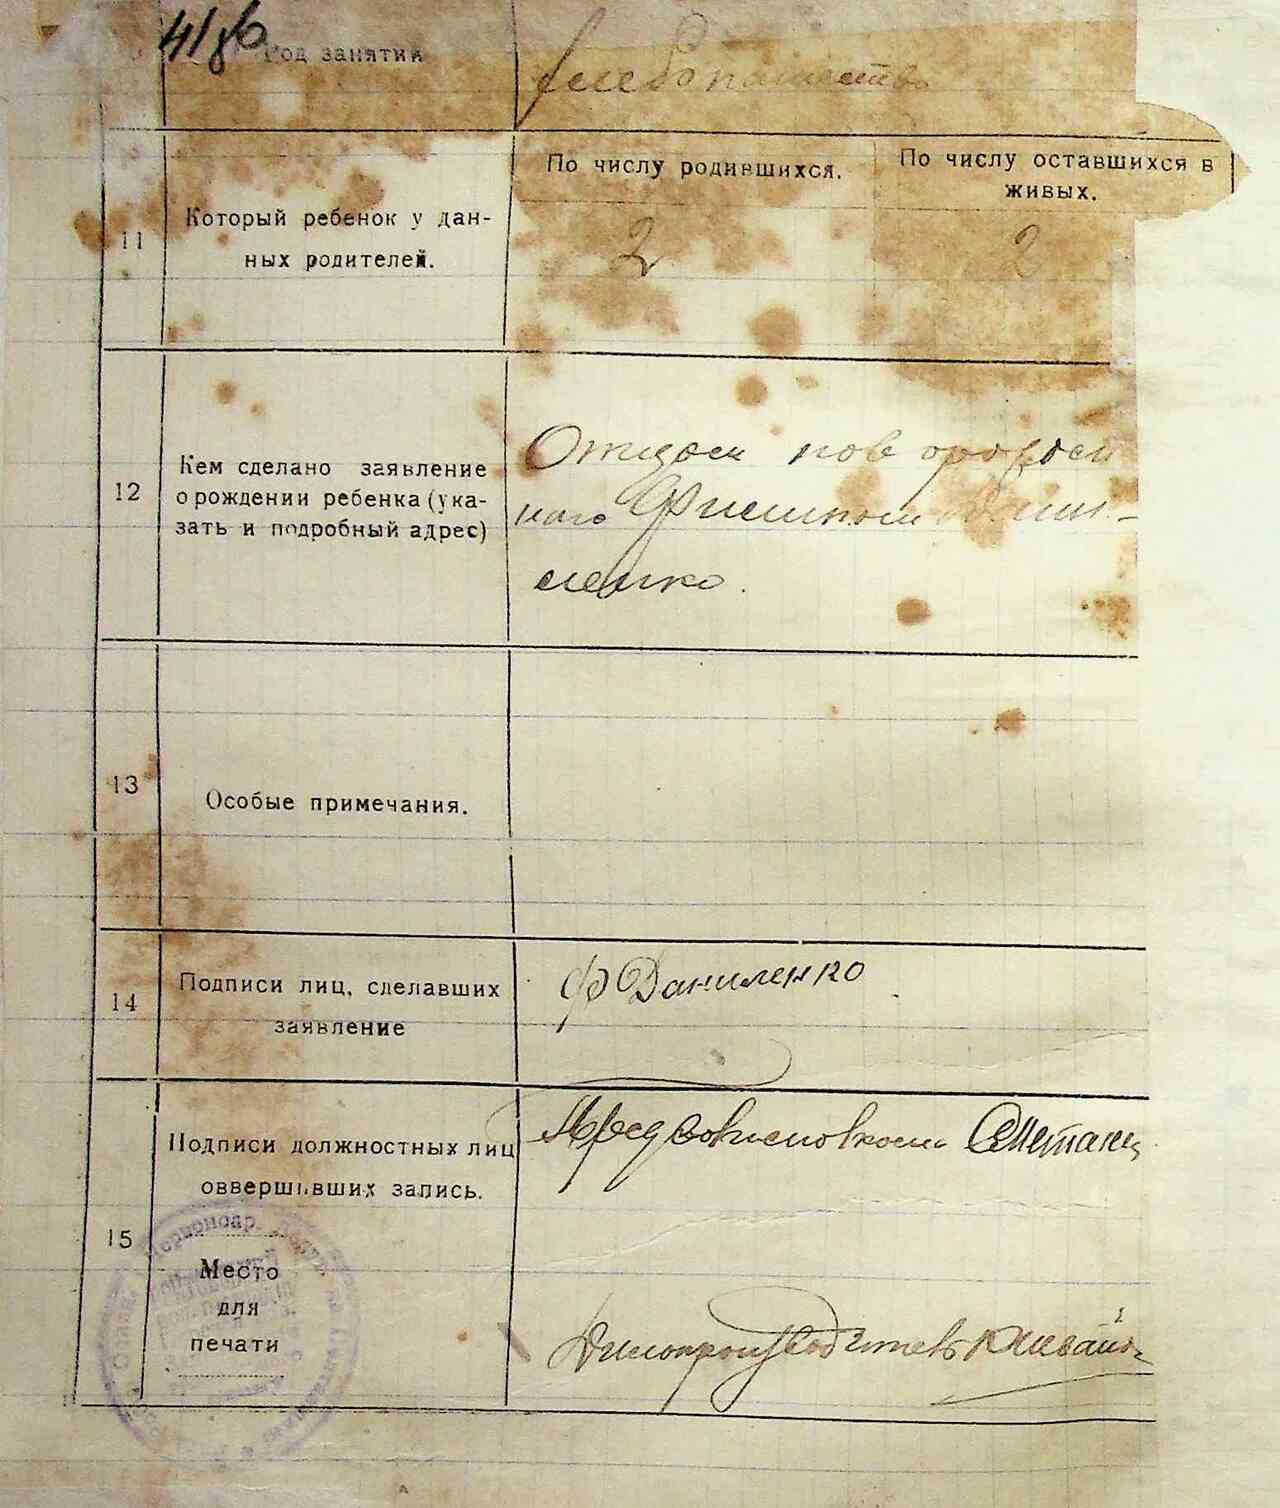 41 об
Род занятий
хлебопашество
11
Который ребенок у дан-
ных родителей.
По числу родившихся.
По числу оставшихся в
живых.
2
2
12
Кем сделано заявление
о рождении ребенка (ука-
зать и подробный адрес)
Отцом новорожден
ного Филипом Дани-
ленко.
13
Особые примечания.
14
Подписи лиц, сделавших
заявление
Ф Даниленко
15
Подписи должностных лиц
оввершивших запись.
Пред
Место
для
печати
Делопроизводитель